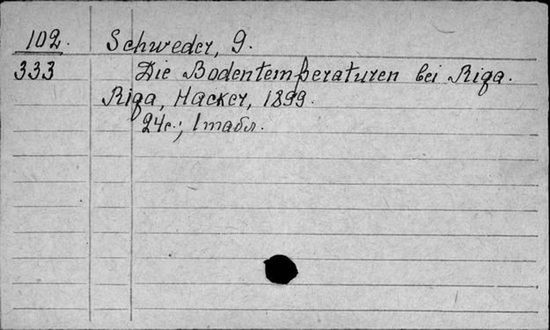 102. Schweder, G.
333 Die Bodentemperaturen bei Riga.
Riga, Hacker, 1899.
24с.; 1 табл.